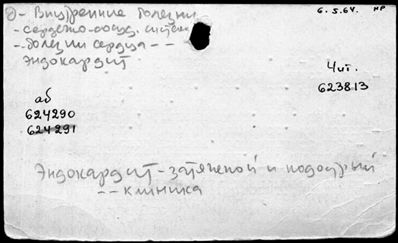 д- Внутренние болезни
- сердечно-сосуд. систем
-- болезни сердца --
Эндокардит
6.5.64. НР
Чит.
623813
аб
624290
624291
Эндокардит - затяжной и подострый
-- клиника